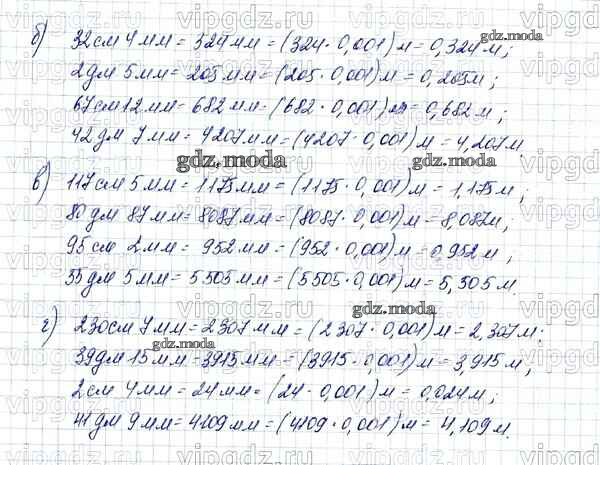 б) 32см 4мм = 324мм = (324 · 0,001)м = 0,324м;
2дм 5мм = 205мм = (205 · 0,001)м = 0,205м;
67см 12мм = 682мм = (682 · 0,001)м = 0,682м;
42дм 7мм = 4207мм = (4207 · 0,001)м = 4,207м.
в) 117см 5мм = 1175мм = (1175 · 0,001)м = 1,175м;
80дм 87мм = 8087мм = (8087 · 0,001)м = 8,087м;
95см 2мм = 952мм = (952 · 0,001)м = 0,952м;
55дм 5мм = 5505мм = (5505 · 0,001)м = 5,505м.
г) 230см 7мм = 2307мм = (2307 · 0,001)м = 2,307м;
39дм 15мм = 3915мм = (3915 · 0,001)м = 3,915м;
2см 4мм = 24мм = (24 · 0,001)м = 0,024м;
41дм 9мм = 4109мм = (4109 · 0,001)м = 4,109м.